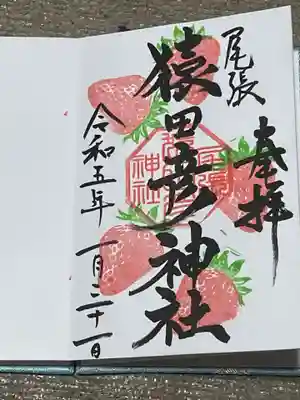 奉拝
尾張
猿田彦神社
令和五年 一月二十一日